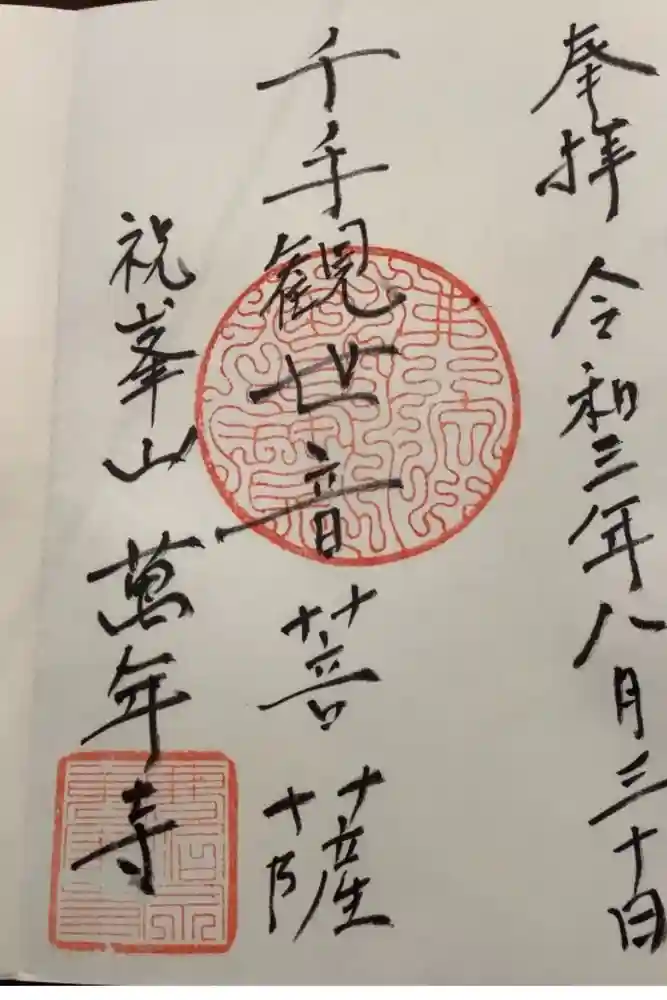 奉拝 令和三年八月三十日
千手観世音菩薩
祝峯山 萬年寺